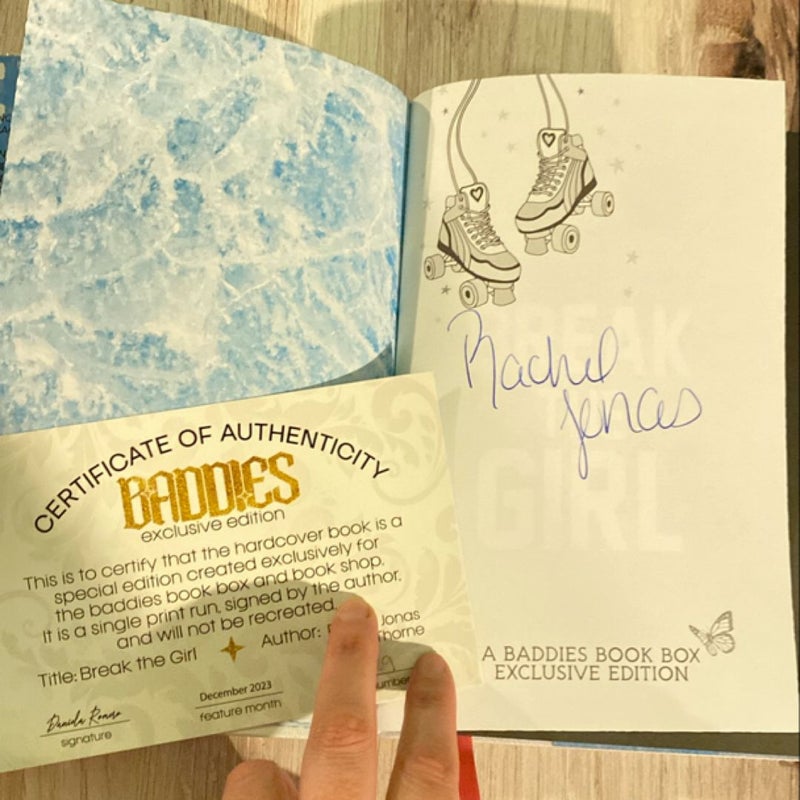 CERTIFICATE OF AUTHENTICITY
BADDIES
exclusive edition
This is to certify that the hardcover book is a
special edition created exclusively for
the baddies book box and book shop.
It is a single print run, signed by the author.
and will not be recreated.
Title: Break the Girl
Author: Jonas
Daniela Romero
signature
December 2023
feature month
Rachel
Jonas
BREAK
GIRL
A BADDIES BOOK BOX
EXCLUSIVE EDITION